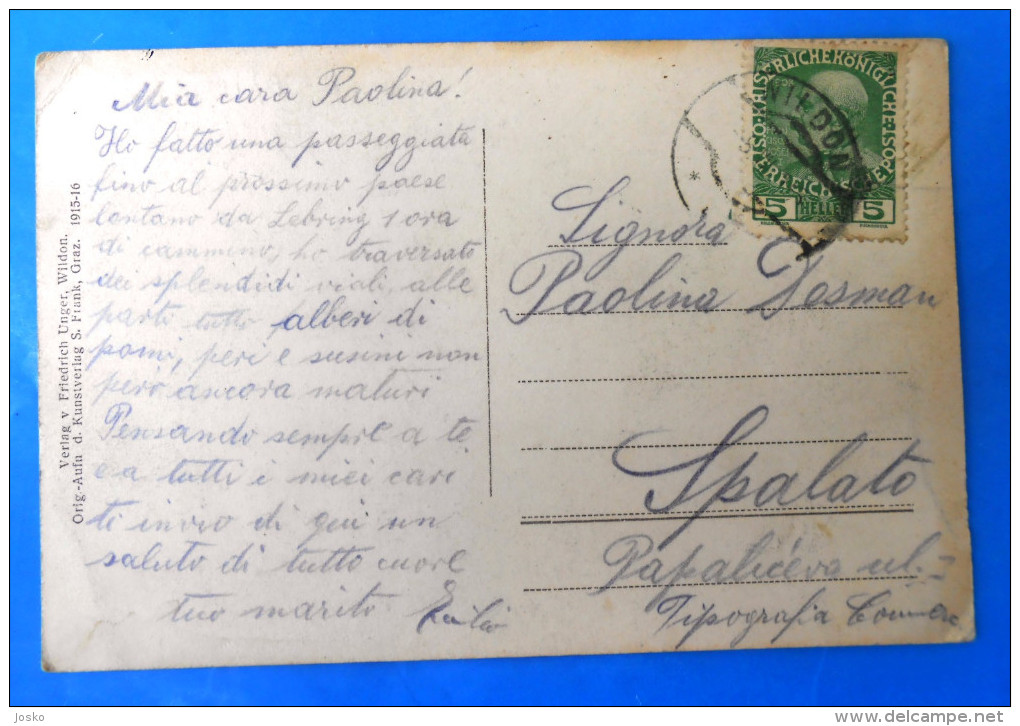 Mia cara Paolina!
Ho fatto una passeggiata
fino al prossimo paese
lontano da Lebring 1 ora
di cammino, ho traversato
dei splendidi viali, alle
parti tutto alberi di
pomi, peri e susini non
però ancora maturi
Pensando sempre a te
e a tutti i miei cari
ti invio di qui un
saluto di tutto cuore
tuo marito Emilio
Verlag v Friedrich Unger, Wildon.
Orig.-Aufn d. Kunstverlag S. Frank, Graz. 1915-16
KAISERLICHE KÖNIGLICHE
ÖSTERREICHISCHE
5 HELLER 5
WILDON
Signora
Paolina Dosman
Spalato
Papalićeva ul.
Tipografia Commerc
josko
delcampe.net